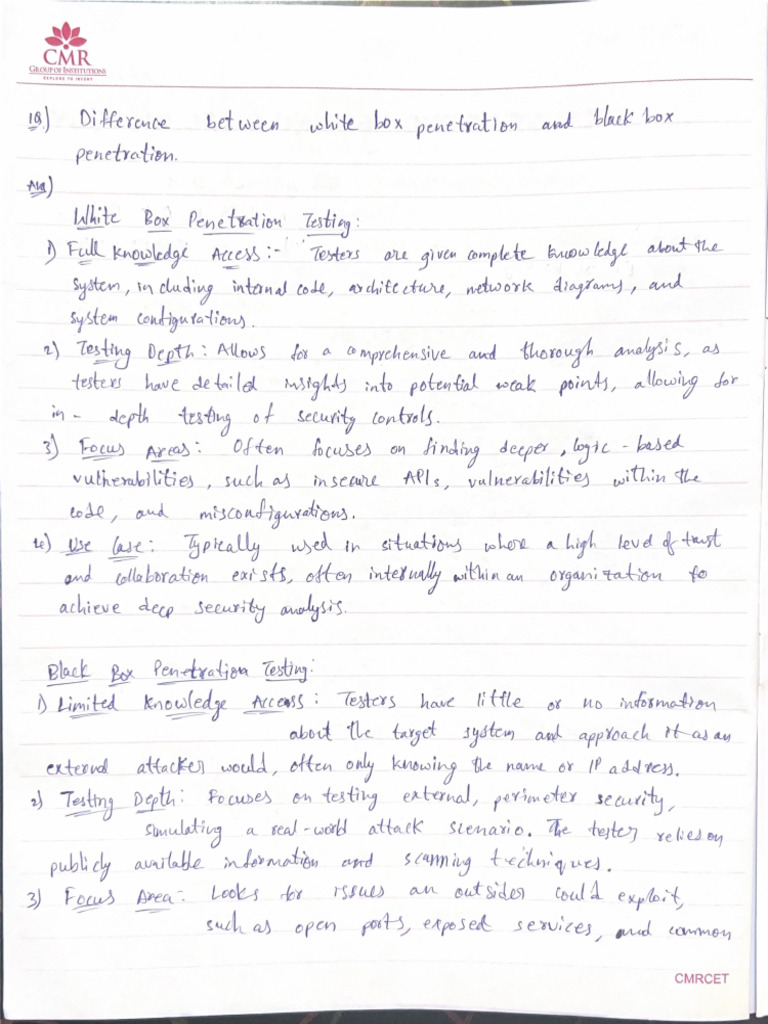 CMR
GROUP OF INSTITUTIONS
EXPLORE TO INVENT
1Q) Difference between white box penetration and black box
penetration.
Ans)
White Box Penetration Testing:
1) Full Knowledge Access:- Testers are given complete knowledge about the
system, including internal code, architecture, network diagrams, and
system configurations.
2) Testing Depth: Allows for a comprehensive and thorough analysis, as
testers have detailed insights into potential weak points, allowing for
in-depth testing of security controls.
3) Focus Areas: Often focuses on finding deeper, logic-based
vulnerabilities, such as insecure APIs, vulnerabilities within the
code, and misconfigurations.
4) Use Case: Typically used in situations where a high level of trust
and collaboration exists, often internally within an organization to
achieve deep security analysis.
Black Box Penetration Testing:
1) Limited Knowledge Access: Testers have little or no information
about the target system and approach it as an
external attacker would, often only knowing the name or IP address.
2) Testing Depth: Focuses on testing external, perimeter security,
simulating a real-world attack scenario. The tester relies on
publicly available information and scanning techniques.
3) Focus Area: Looks for issues an outsider could exploit,
such as open ports, exposed services, and common
CMRCET